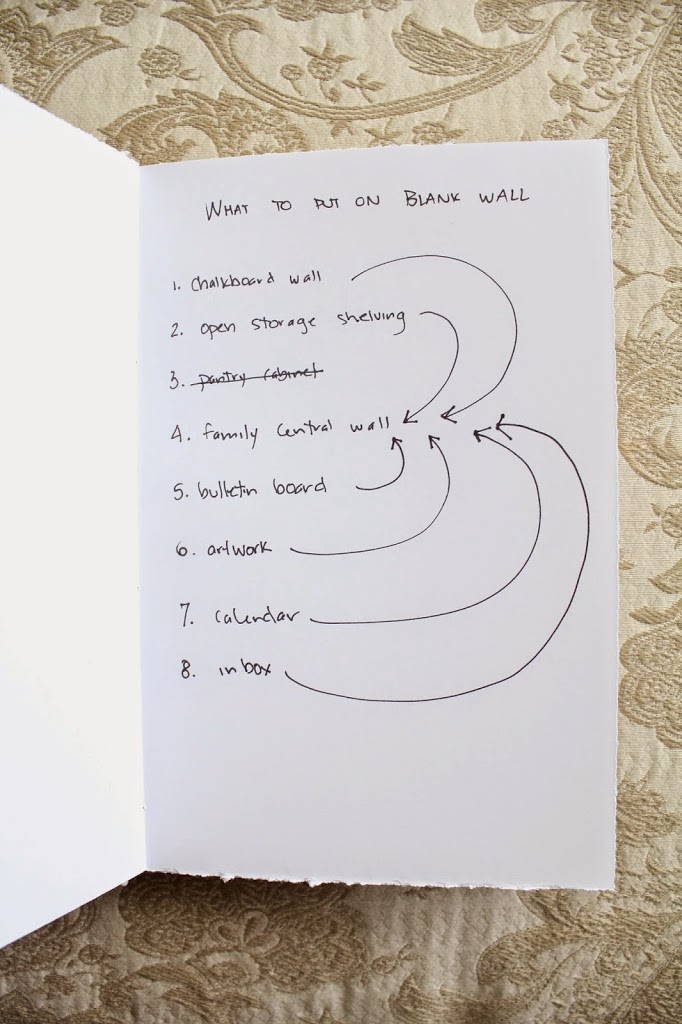 WHAT TO PUT ON BLANK WALL
1. Chalkboard wall
2. open storage shelving
3. pantry cabinet
4. family central wall
5. bulletin board
6. artwork
7. calendar
8. inbox